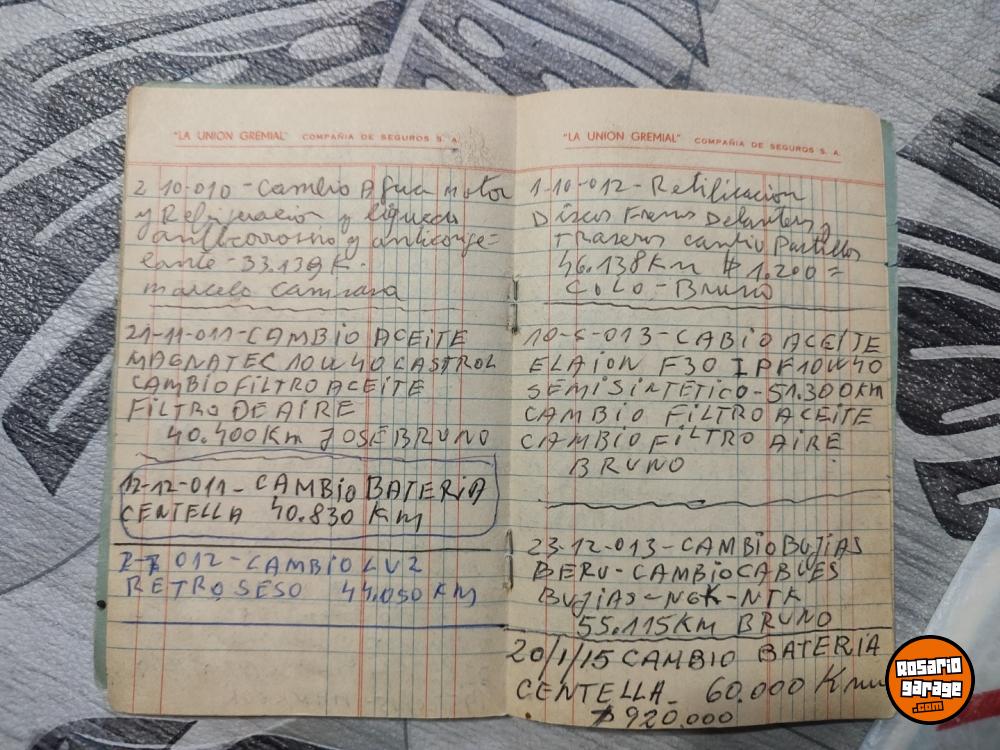 "LA UNION GREMIAL" COMPAÑIA DE SEGUROS S. A.
2 10-010 - Cambio Agua motor
y Refrigeracion y liquido
anticorrosivo y anticonge=
lante - 33.139 K.
marcelo
21-11-011-CAMBIO ACEITE
MAGNATEC 10W40 CASTROL
CAMBIO FILTRO ACEITE
FILTRO DE AIRE
40.400Km JOSE BRUNO
12-12-011- CAMBIO BATERIA
CENTELLA 40.830 KM
012-CAMBIO LUZ
RETROSESO 44.050 KM
"LA UNION GREMIAL" COMPAÑIA DE SEGUROS S. A.
1-10-012- Retificacion
Discos Frenos Delanteros y
Traseros cambio Pastillas
46.138Km $1.200=
COLO-Bruno
013-CABIO ACEITE
ELAION F30 IPF10W40
SEMISINTETICO-51.300KM
CAMBIO FILTRO ACEITE
CAMBIO FILTRO AIRE
BRUNO
23-12-013-CAMBIO BUJIAS
BERU-CAMBIO CABLES
BUJIAS-NGK-NTK
55.115KM BRUNO
20/1/15 CAMBIO BATERIA
CENTELLA_ 60.000 Km
920.000
Rosario
garage
.com